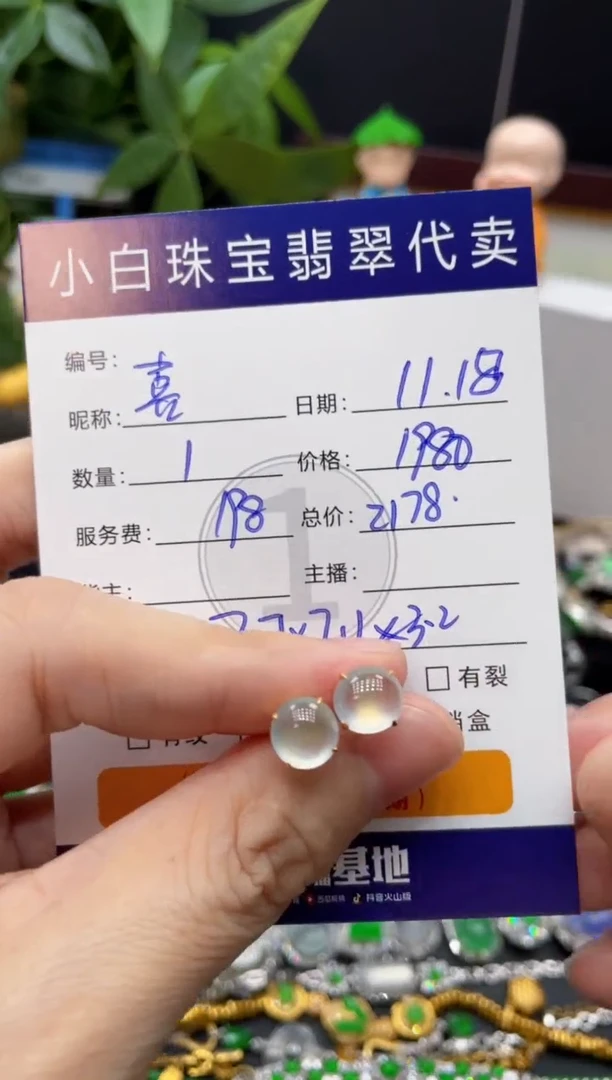 小白珠宝翡翠代卖
编号：
昵称： 喜 日期： 11.18
数量： 1 价格： 1980
服务费： 198 总价： 2178.
货主： 主播：
7.7×7.1×3.2
有裂
有纹
基地
抖音火山版